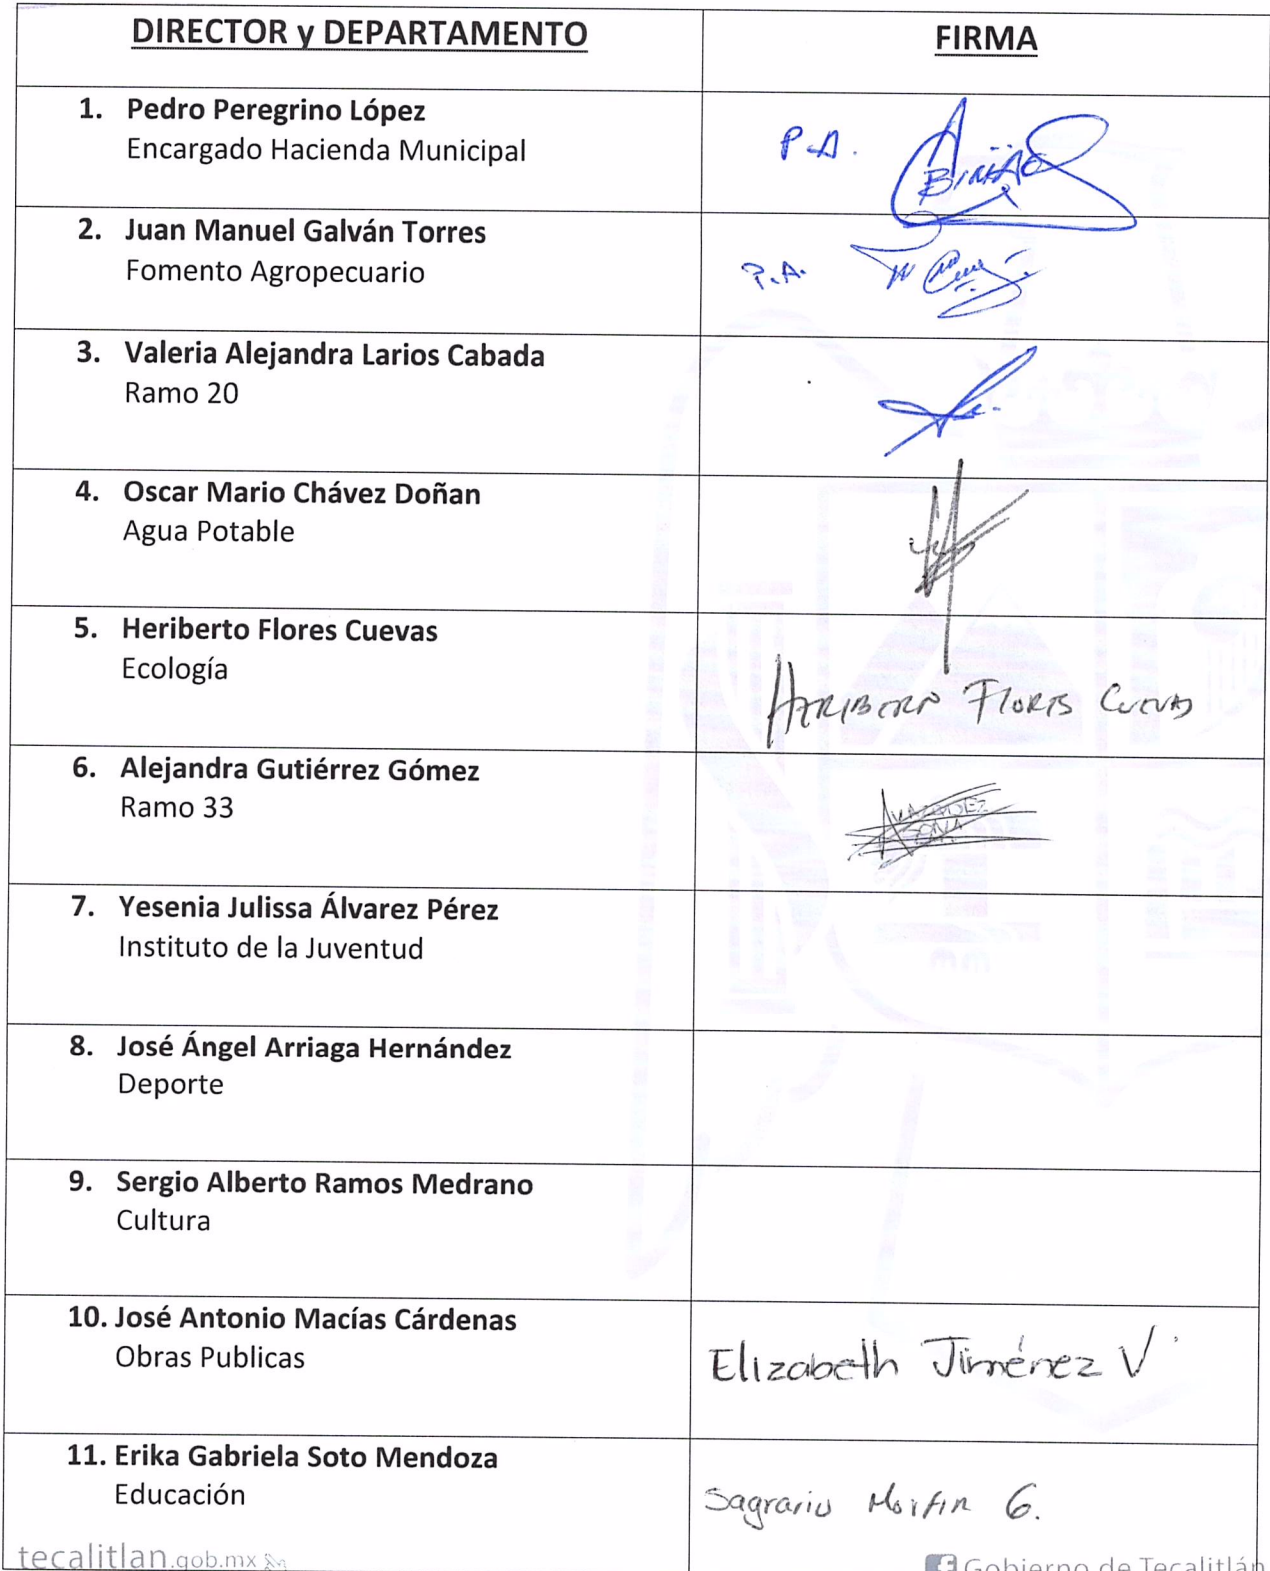 DIRECTOR y DEPARTAMENTO
FIRMA
1. Pedro Peregrino López
Encargado Hacienda Municipal
P.A.
2. Juan Manuel Galván Torres
Fomento Agropecuario
P.A.
3. Valeria Alejandra Larios Cabada
Ramo 20
4. Oscar Mario Chávez Doñan
Agua Potable
5. Heriberto Flores Cuevas
Ecología
Flores Cuevas
6. Alejandra Gutiérrez Gómez
Ramo 33
7. Yesenia Julissa Álvarez Pérez
Instituto de la Juventud
8. José Ángel Arriaga Hernández
Deporte
9. Sergio Alberto Ramos Medrano
Cultura
10. José Antonio Macías Cárdenas
Obras Publicas
Elizabeth Jiménez V
11. Erika Gabriela Soto Mendoza
Educación
Sagrario Morfin G.
tecalitlan.gob.mx
Gobierno de Tecalitlán